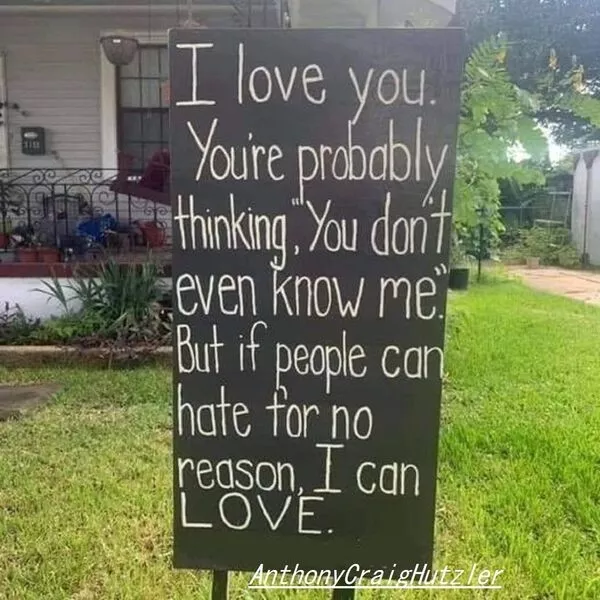 I love you.
You're probably
thinking,"You don't
even know me."
But if people can
hate for no
reason, I can
LOVE.
AnthonyCraigHutzler